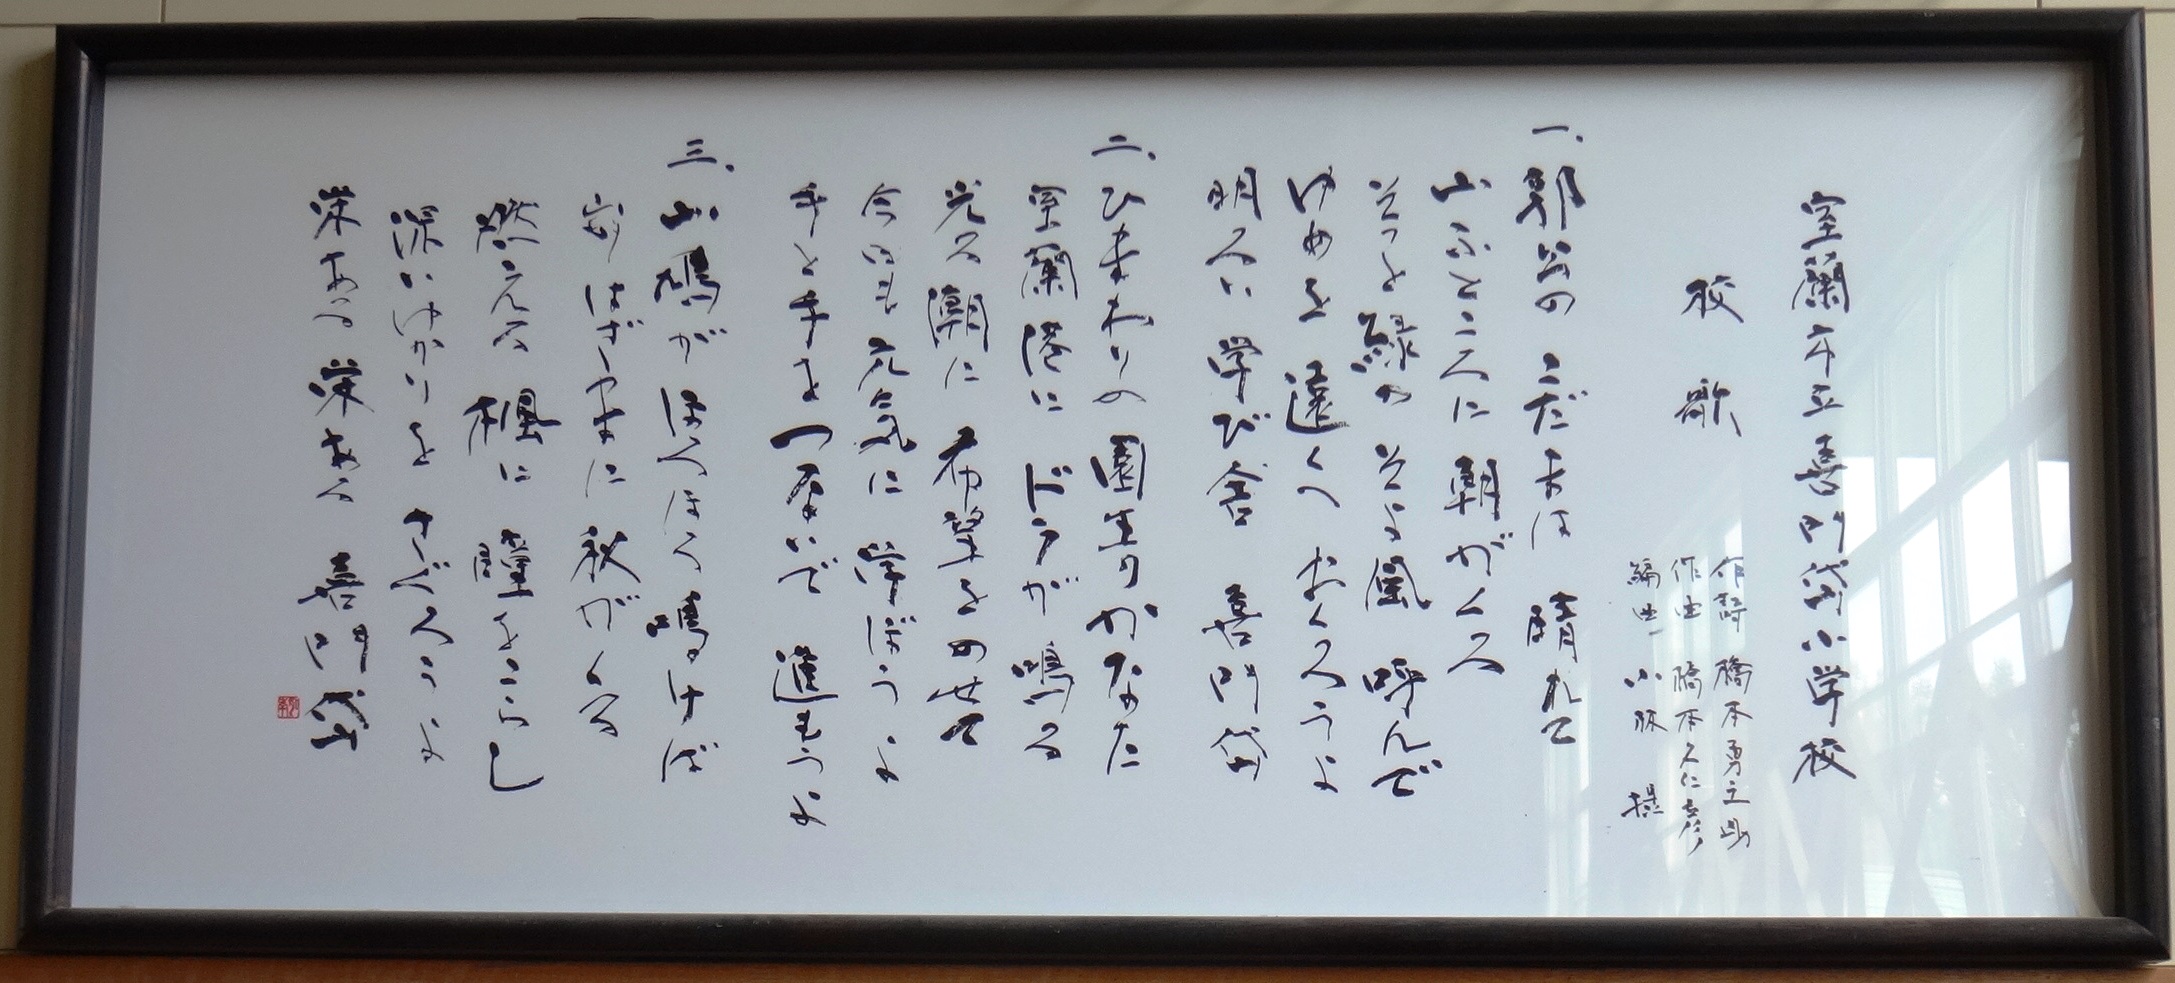 室蘭市立喜門岱小学校
校歌
作詩 橋本勇之助
作曲 橋本久仁彦
編曲 小林 操
一、郭公の こだまは 晴れて
山ふところに 朝がくる
そっと緑の そよ風 呼んで
ゆめを 遠くへ おくろうよ
明るい 学び舎 喜門岱
二、ひまわりの 園生のかなた
室蘭港に ドラが 鳴る
光る潮に 希望をのせて
今日も 元気に 学ぼうよ
手と手を つないで 進もうよ
三、山鳩が ほろほろ 鳴けば
はざまに 秋がくる
燃える 楓に 瞳をこらし
深いゆかりを さぐろうよ
栄ある 栄ある 喜門岱